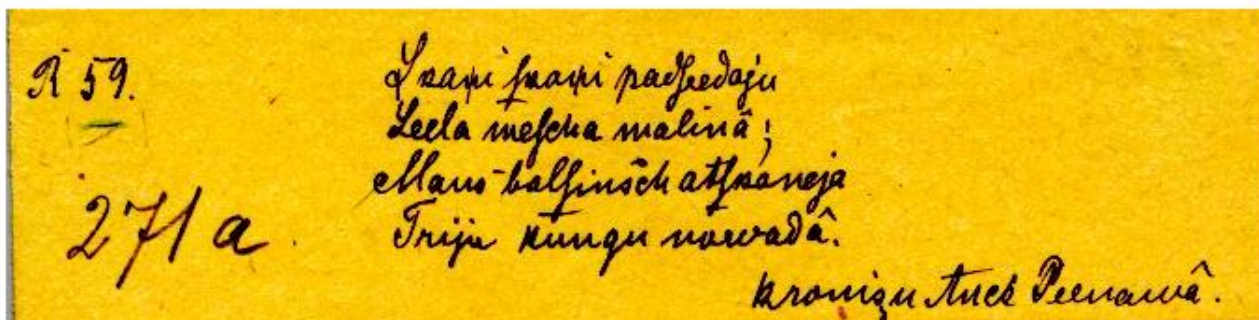 R 59.
Skaņi skaņi padseedaju
Leela mescha malinâ;
271 a.
Mans balsinsch atskaneja
Triju kungu nowadâ.
Kronizu Anck Peenawâ.